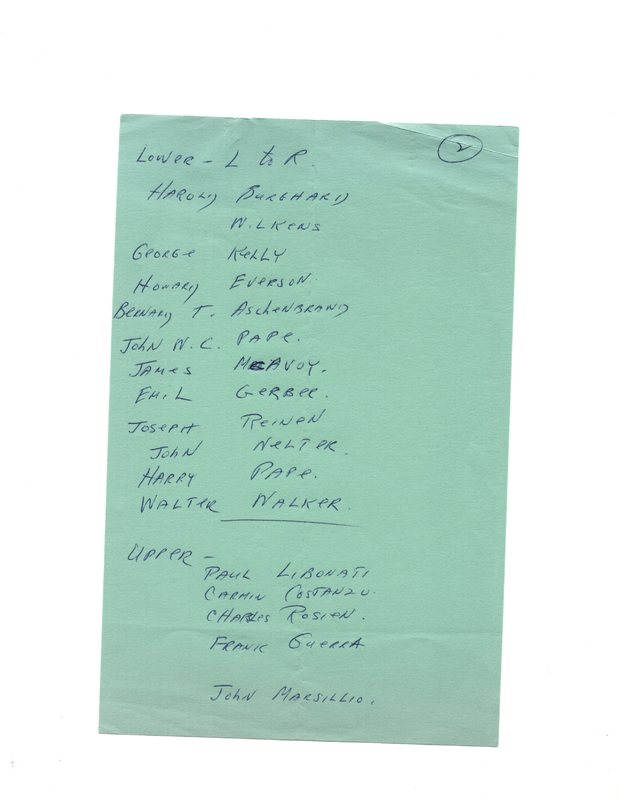 2
Lower - L to R.
Harold Burghard
Wilkens
George Kelly
Howard Everson
Bernard T. Aschenbrand
John W. C. Pape.
James McAvoy.
Emil Gerber.
Joseph Reinen
John Nelter.
Harry Pape.
Walter Walker.
Upper -
Paul Libonati
Carmin Costanzo.
Charles Rosien.
Frank Guerra
John Marsillio.